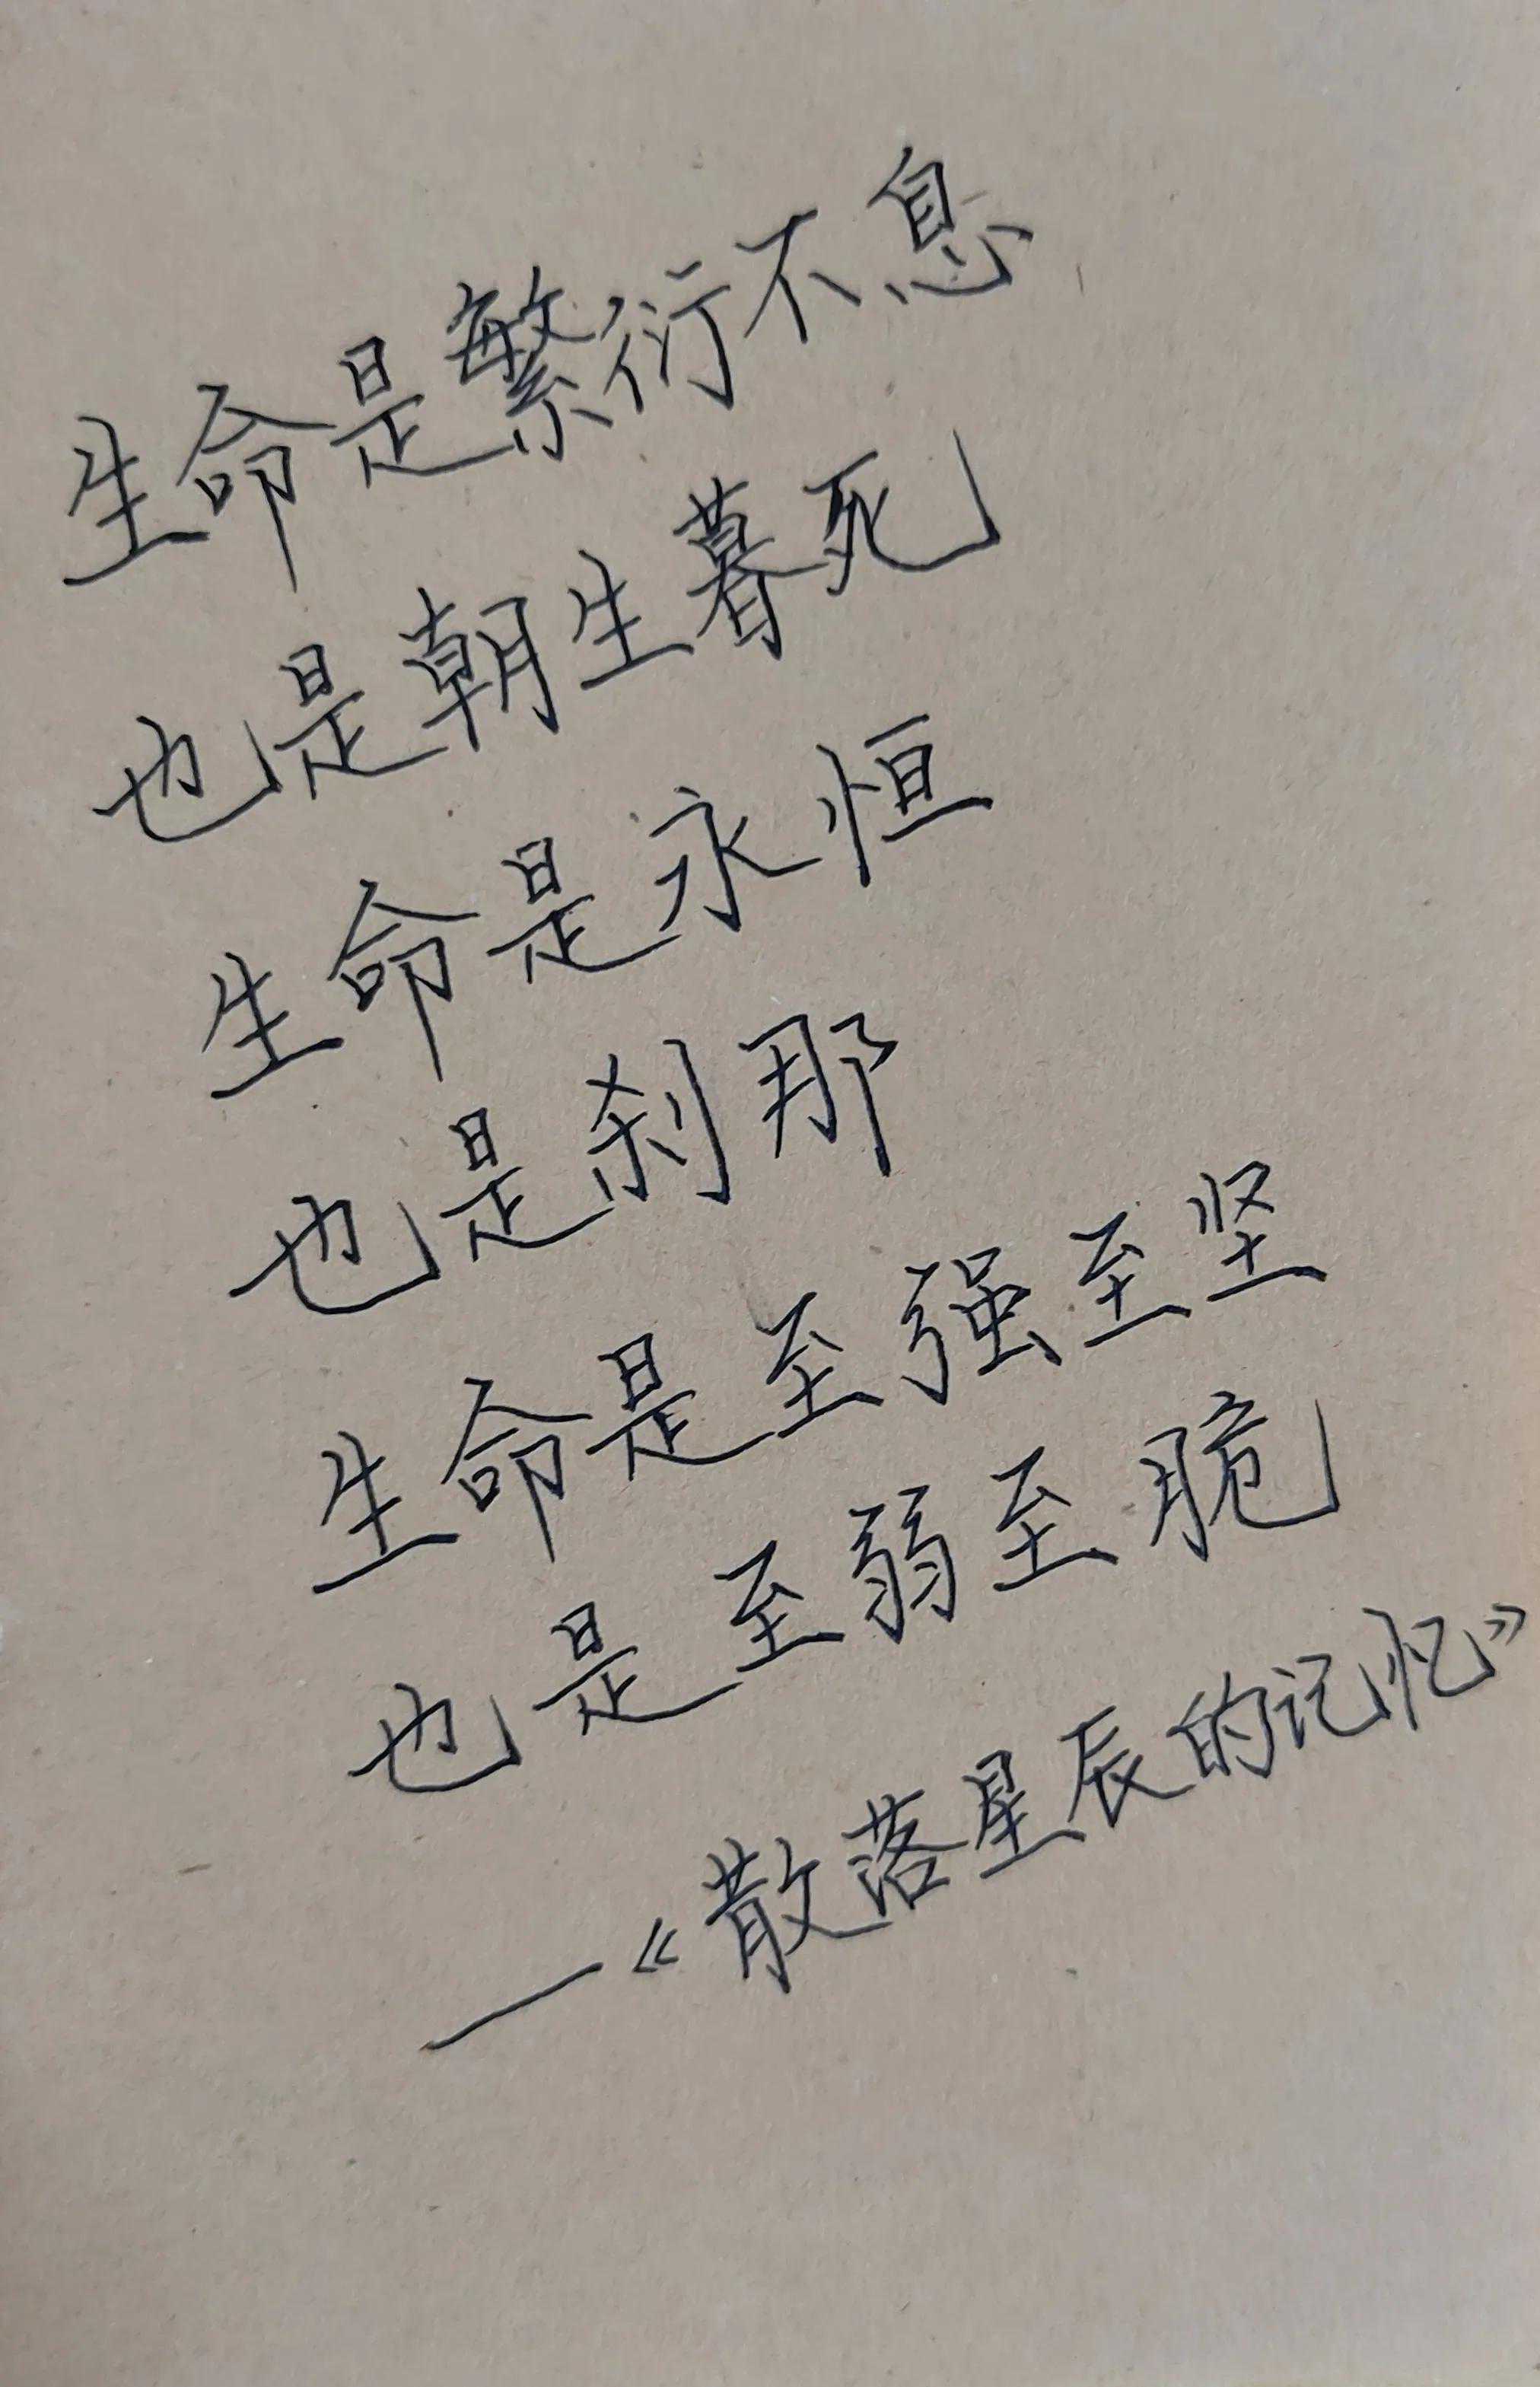 生命是繁衍不息
也是朝生暮死
生命是永恒
也是刹那
生命是至强至坚
也是至弱至脆
—《散落星辰的记忆》